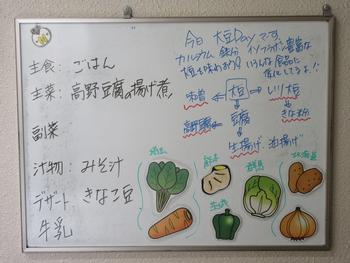 主食: ごはん
主菜: 高野豆腐の揚げ煮
副菜
汁物: みそ汁
デザート きなこ豆
牛乳
今日 大豆Dayです。
カルシウム 鉄分 イソフラボン豊富な
大豆を味わおう!! いろんな食品に
変化してるよ!!
味噌 大豆 いり大豆
高野豆腐 豆腐 きな粉
生揚げ、油揚げ
埼玉 群馬 北海道
茨城